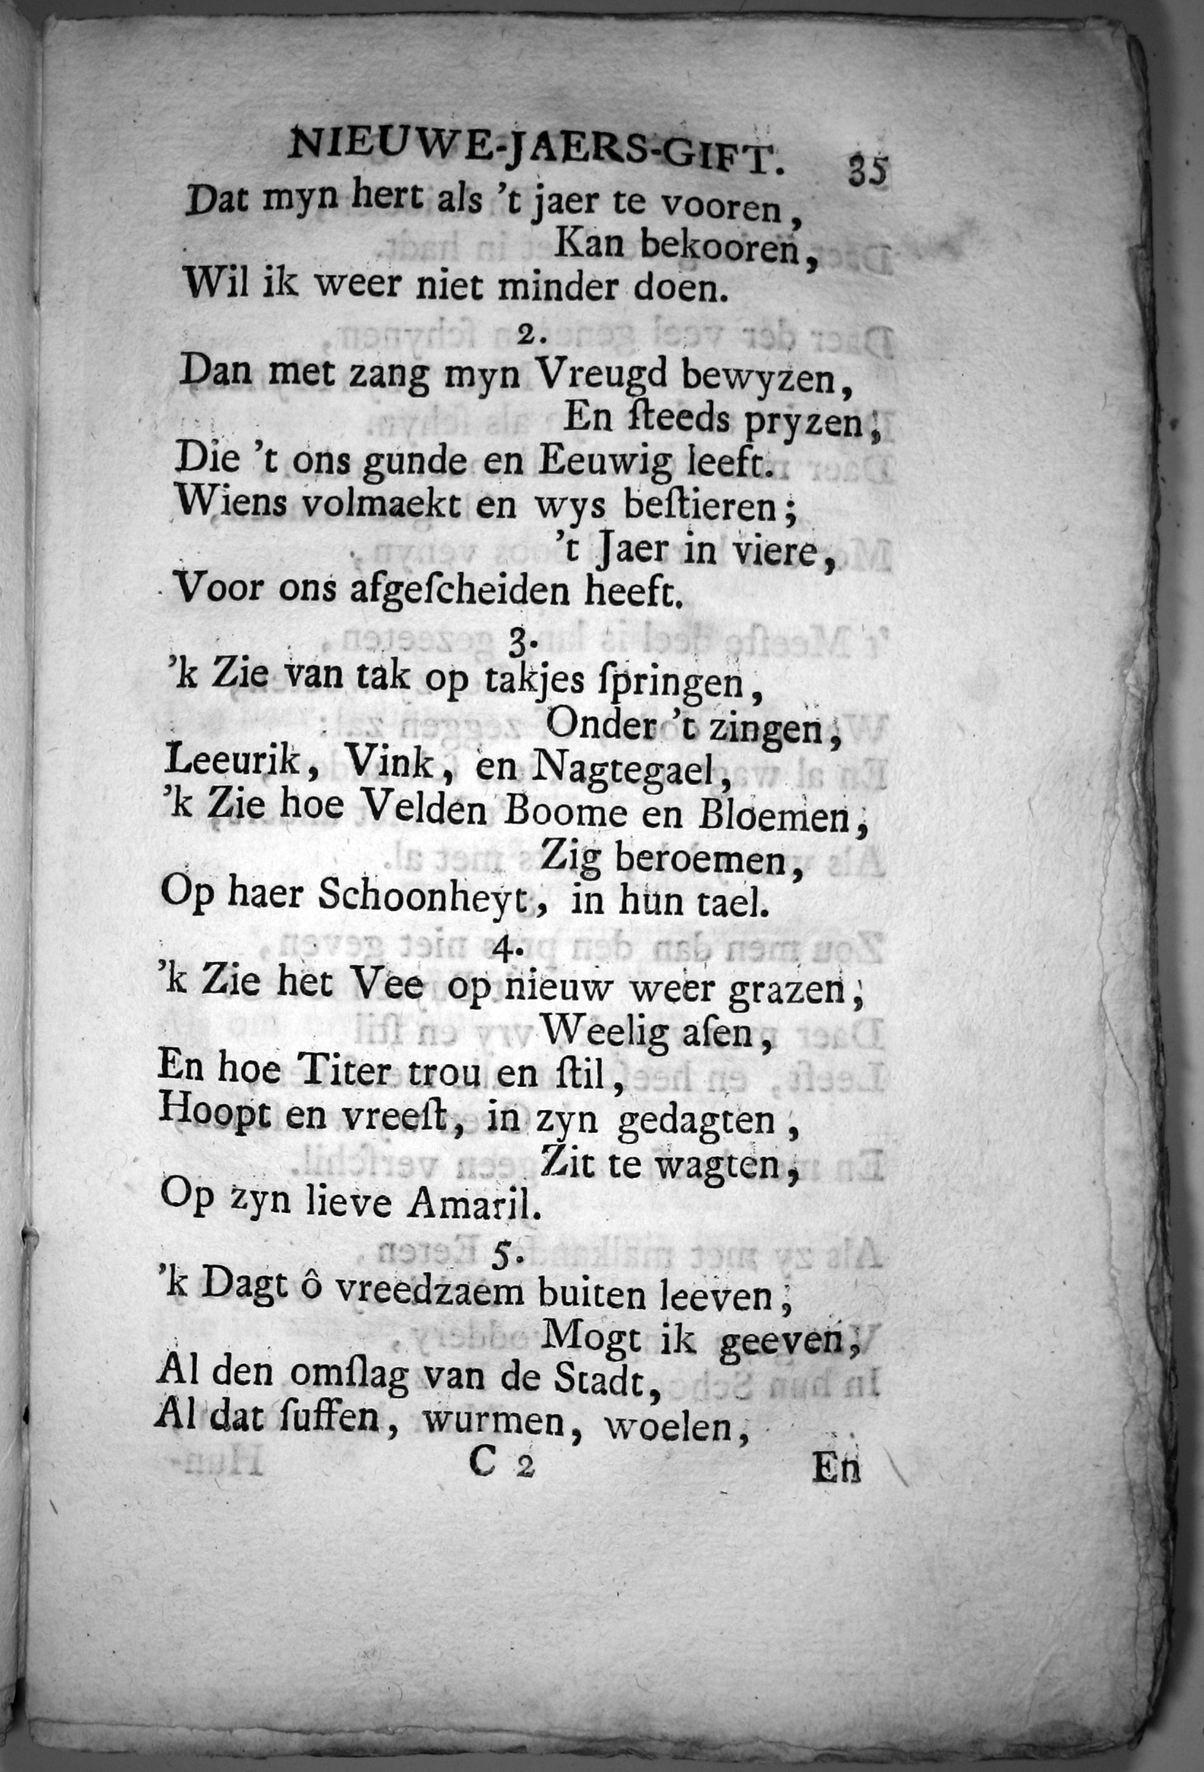 NIEUWE-JAERS-GIFT. 35
Dat myn hert als 't jaer te vooren,
Kan bekooren,
Wil ik weer niet minder doen.
2.
Dan met zang myn Vreugd bewyzen,
En ſteeds pryzen;
Die 't ons gunde en Eeuwig leeft.
Wiens volmaekt en wys beſtieren;
't Jaer in viere,
Voor ons afgeſcheiden heeft.
3.
'k Zie van tak op takjes ſpringen,
Onder 't zingen,
Leeurik, Vink, en Nagtegael,
'k Zie hoe Velden Boome en Bloemen,
Zig beroemen,
Op haer Schoonheyt, in hun tael.
4.
'k Zie het Vee op nieuw weer grazen,
Weelig aſen,
En hoe Titer trou en ſtil,
Hoopt en vreeſt, in zyn gedagten,
Zit te wagten,
Op zyn lieve Amaril.
5.
'k Dagt ô vreedzaem buiten leeven,
Mogt ik geeven,
Al den omſlag van de Stadt,
Al dat ſuffen, wurmen, woelen,
C 2 En